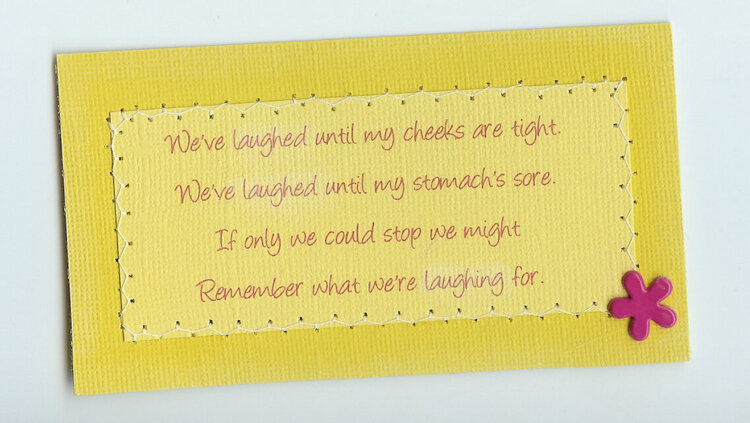 We've laughed until my cheeks are tight.
We've laughed until my stomach's sore.
If only we could stop we might
Remember what we're laughing for.